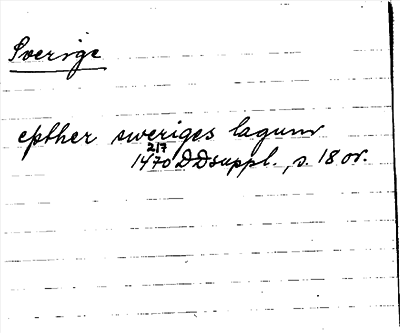 Sverige
epther sweriges lagum
2/7
1470 DD suppl., s. 18 or.